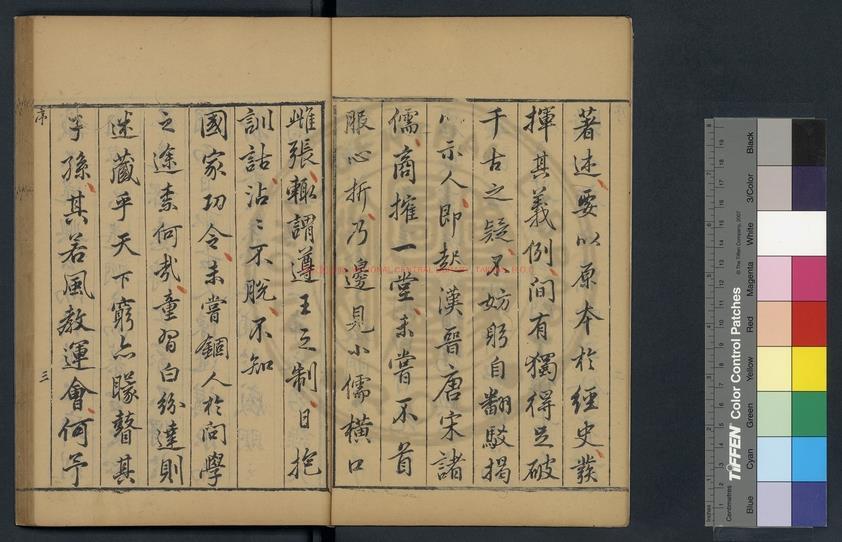 著述要以原本於經史發
揮其義例間有獨得足破
千古之疑不妨躬自翻駁揭
以示人即起漢晉唐宋諸
儒商搉一堂未嘗不首
服心折乃邊見小儒橫口
雌張輙謂遵王之制日抱
訓詁沾〻不脫不知
國家功令未嘗錮人於問學
之途柰何哉童習白紛達則
迷藏乎天下窮亦矇瞽其
子孫其若風教運會何予
序
三
NATIONAL CENTRAL LIBRARY, TAIWAN, R.O.C
TIFFEN Color Control Patches
© The Tiffen Company, 2007
Centimetres
Inches
Blue
Cyan
Green
Yellow
Red
Magenta
White
3/Color
Black